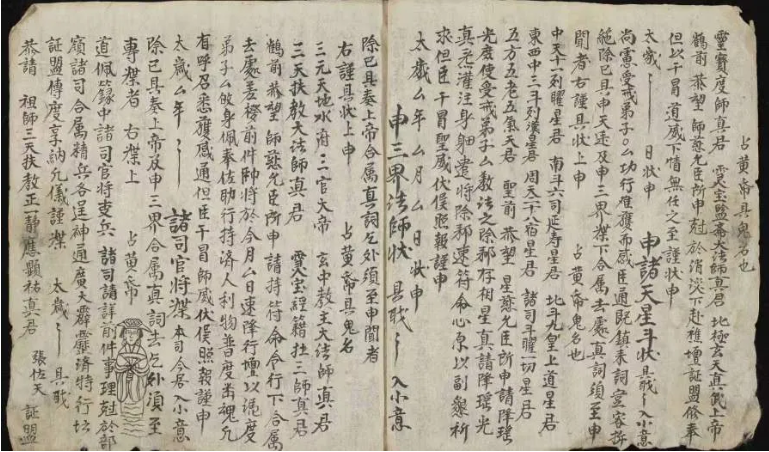 占黄帝具鬼名也
靈寳度師真君 靈宝監斋大法師真君 北極玄天真武上帝
鶴前 恭望 師慈允臣所申 尅於消災下赴雅壇証盟修奉
但以干冒道威下情無任之至謹狀申
太歲 日狀申 申諸天星斗狀 具職 入小意
尚書受戒弟子 厶功行雖獲而感臣週既鎮來詞宣容拆
絶除已具申天廷及申三界牒下合属去處真詞須至申
聞者右謹具狀上申 占黄帝鬼名也
中天十列曜星君 南斗六司延寿星君 北斗九皇上道星君
東西中三斗列漢星君 周天廿八宿星君 諸司斗曜一切星君
五方五老五氣天君 聖前 恭望 星慈允臣所申請降瑤
光度使受戒弟子厶教法之除邪存樹星真請降瑤光
真炁灌注身躯遣将除邪速符命心原以副懇祈
求但臣干冒聖威伏候照報謹申
太歲厶年厶月厶日狀申
申三界法師狀 具職 入小意
除已具奏上帝合属真詞乞外須至申聞者
右謹具狀上申 占黄帝具鬼名
三元天地水府三官大帝 玄中教主大法師真君
三天扶教大法師真君 靈宝經籍杜三師真君
鶴前恭望師慈允臣所申請持符命令行下合属
去處善撥前件帥将於今月厶日速降行壇以憑度
弟子厶皈身佩奉佐助行持濟人利物普度幽魂凡
有呼召悉獲感通但臣干冒師威伏候照報謹申
太歲厶年 諸司官将牒 本司今居入小意
除已具奏上帝及申三界合属真詞去乞外須至
專牒者 右牒上 占黄帝
道佩籙中諸司官将吏兵 諸司請詳前件事理尅於部
領諸司合属精兵各逞神通廣大霹靂濟特行坛
証盟傳度享納凡儀謹牒 太歲 具職
恭請 祖師三天扶教正一靜應顯祐真君 張佐天 証盟